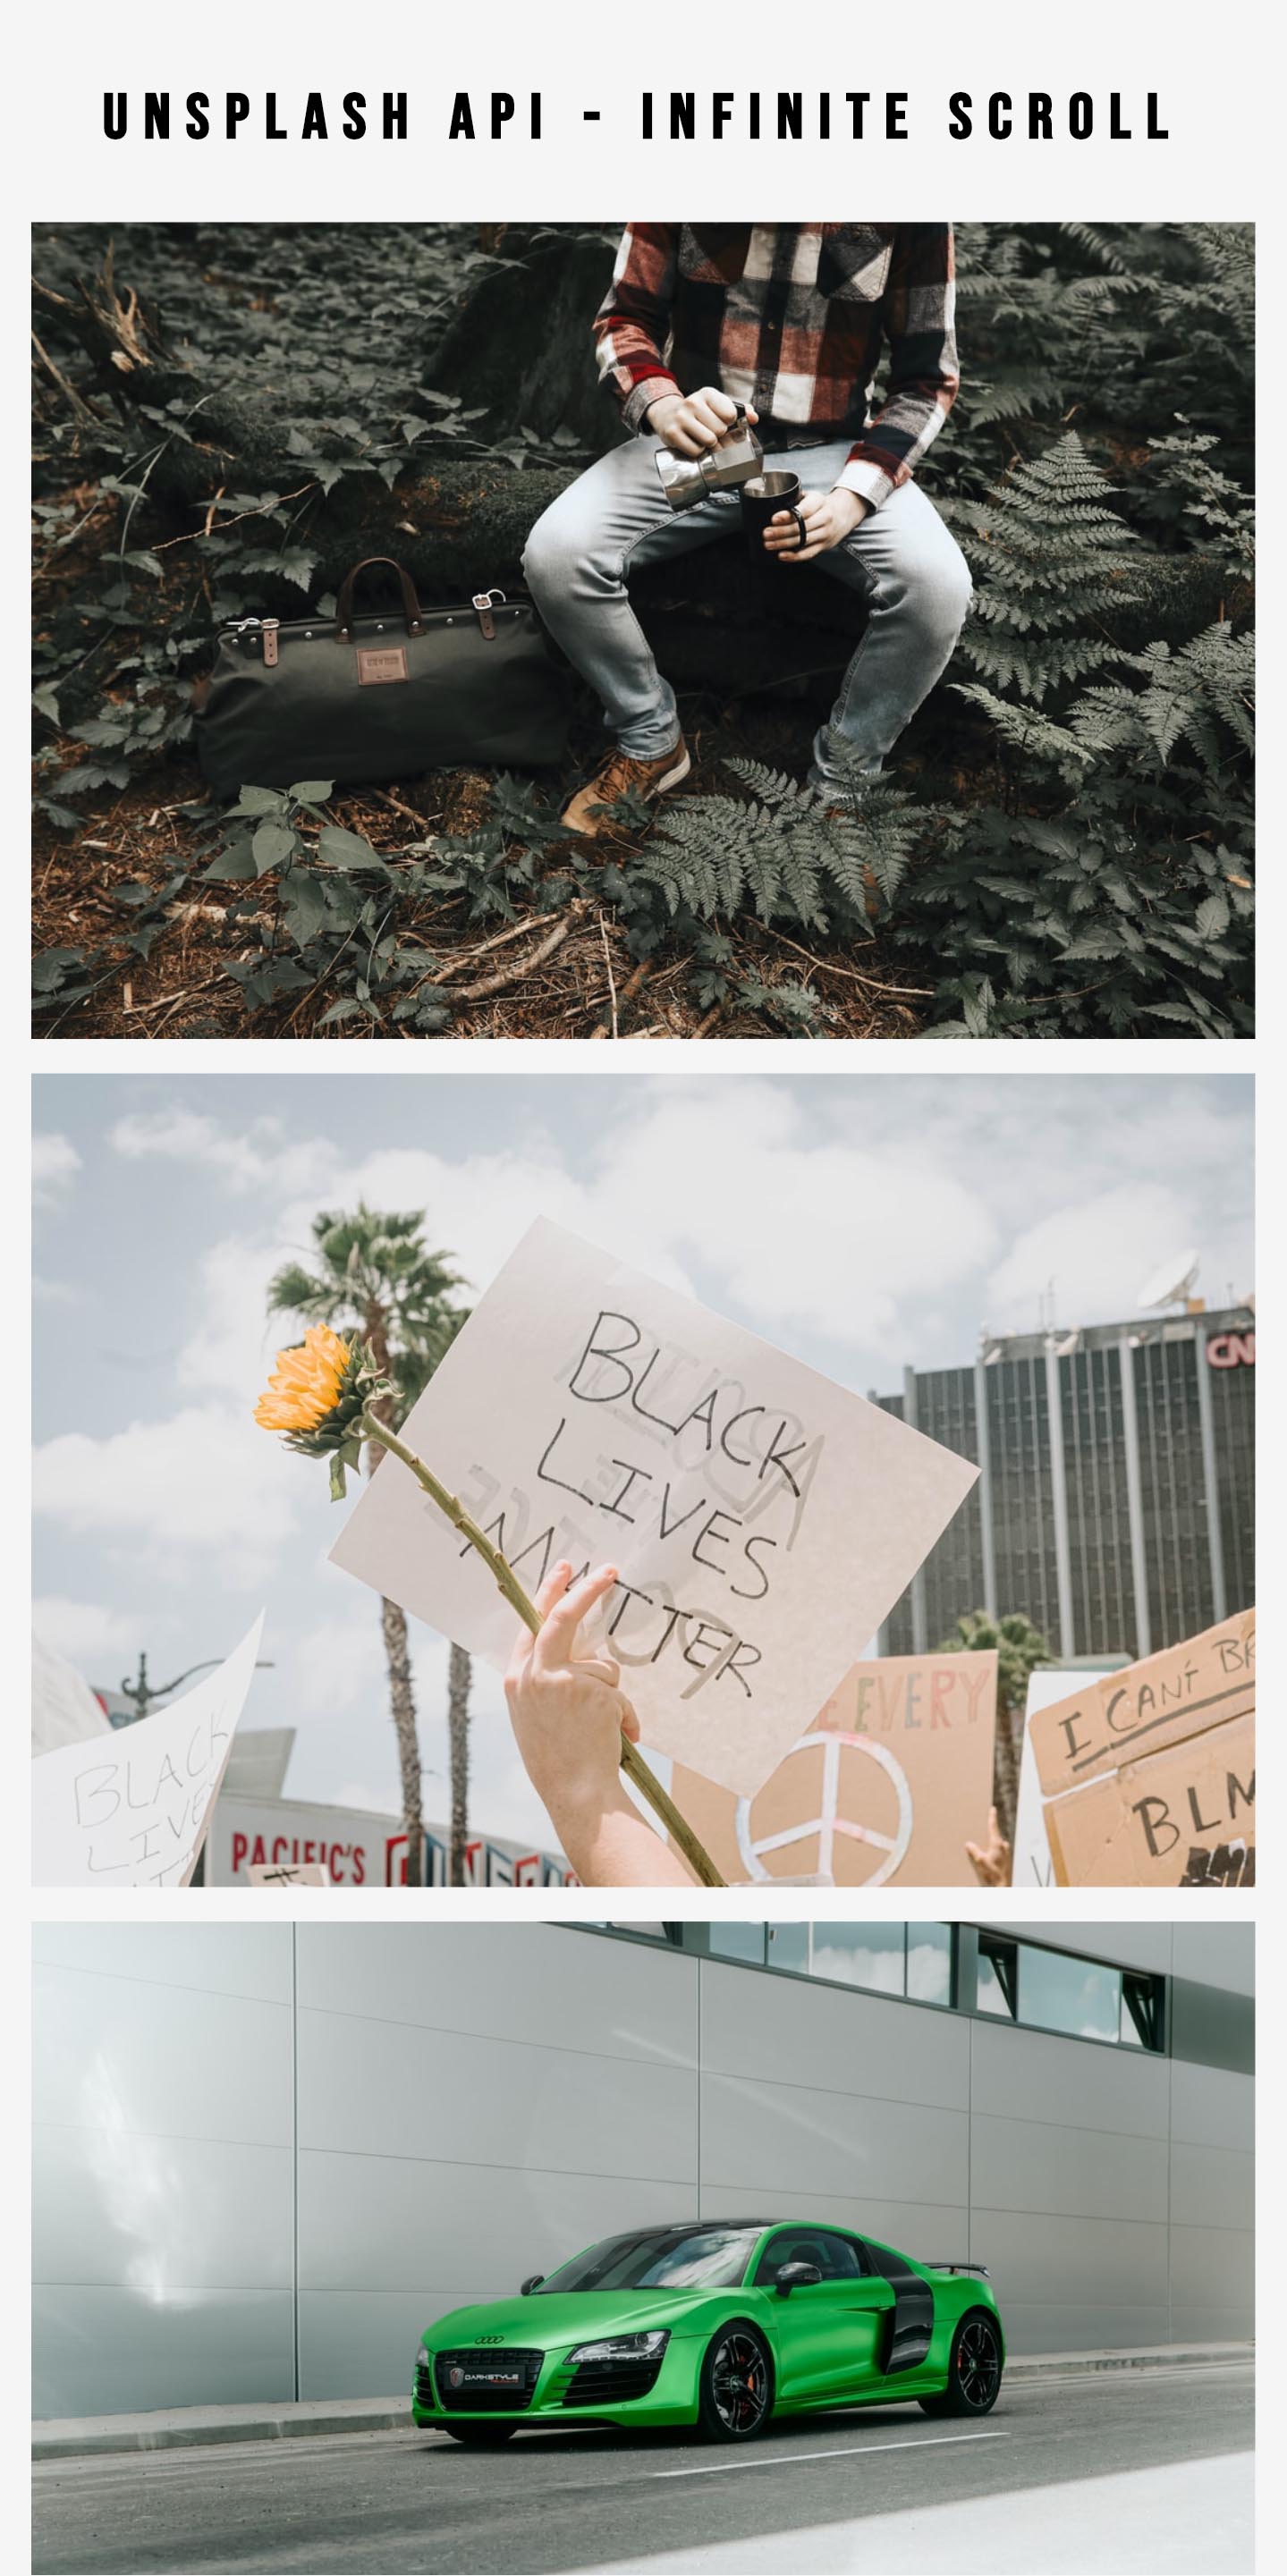 UNSPLASH API - INFINITE SCROLL
BLACK
LIVES
MATTER
EVERY
I CAN'T BR
BLM
BLACK
LIVE
PACIFIC'S
CN
DARKSTYLE